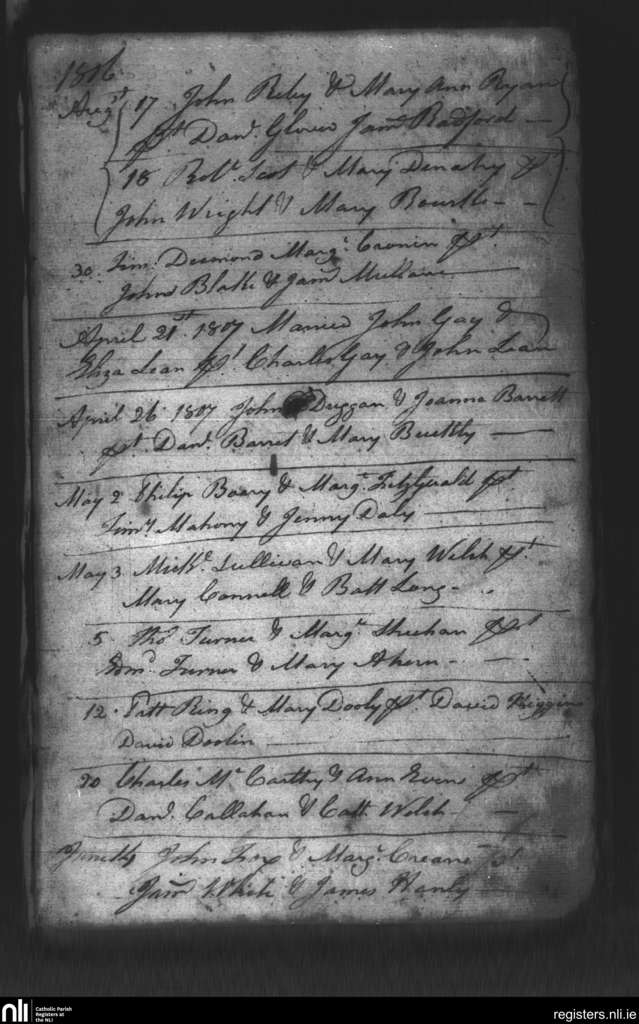 1806
Augst 17 John Reley & Mary Ann Ryan
pst Danl Glover Jams Radford
18 Robt Scot & Mary Denahy pst
John Wright & Mary Bourke
30 Timy Desmond Margt Cronin pst
John Blake & Jams Mullane
April 21st 1807 Married John Gay &
Eliza Lean pst Charles Gay & John Lean
April 26 1807 John Duggan & Joanna Barrett
pst Danl Barret & Mary Buckly
May 2 Philip Barry & Margt FitzGerald pst
Timy Mahony & Jenny Daly
May 3 Michl Sullivan & Mary Welsh pst
Mary Connell & Batt Long
5 Thos Turner & Margt Sheehan pst
Edmd Turner & Mary Ahern
12 Patt Ring & Mary Dooly pst David Higgins
David Doolin
20 Charles McCarthy & Ann pst
Danl Callahan & Catt Welsh
John Fox & Margt Creane pst
Jams White & James Hanly
nli Catholic Parish
Registers at
the NLI
registers.nli.ie